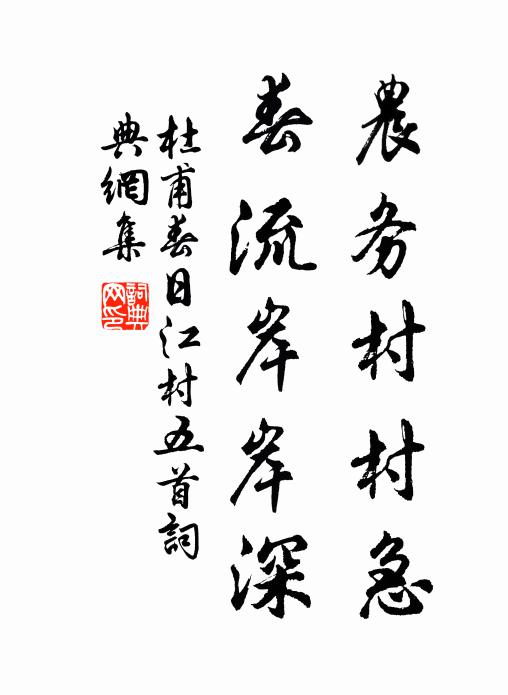 農务村村急
春流岸岸深
杜甫春日江村五首詞
典網集
詞典
网印